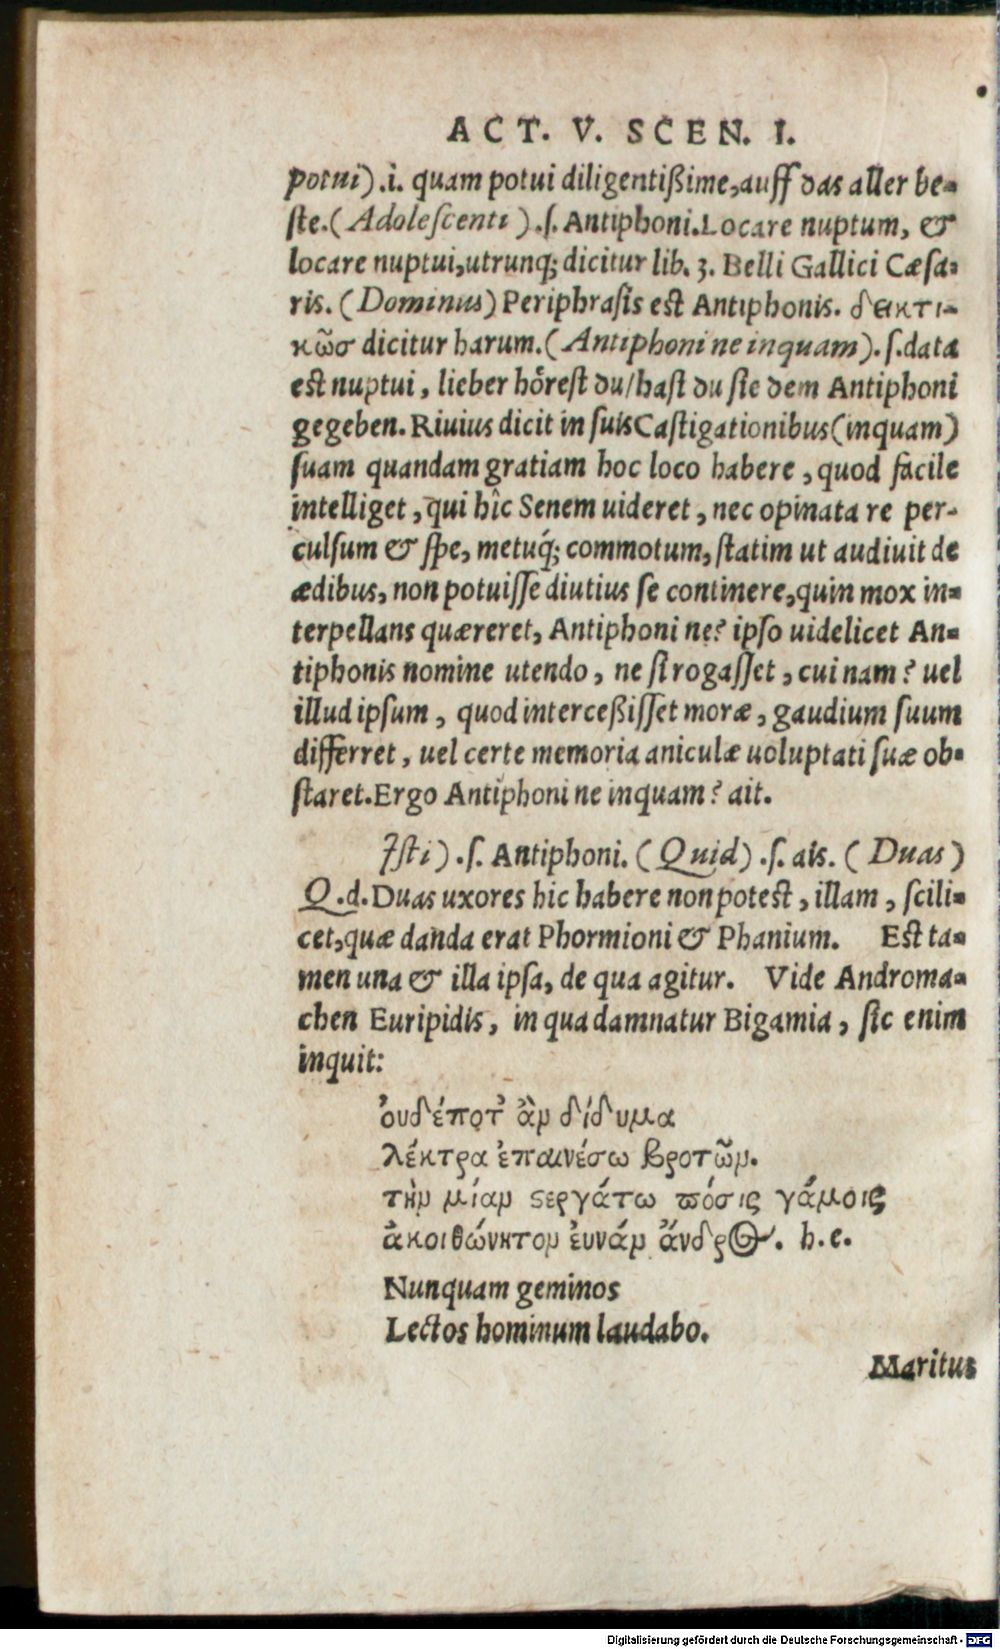 ACT. V. SCEN. I.
potui) .i. quam potui diligentißime, auff das aller be-
ste. (Adolescenti) .ſ. Antiphoni. Locare nuptum, &
locare nuptui, utrunq; dicitur lib. 3. Belli Gallici Cæſa-
ris. (Dominus) Periphraſis est Antiphonis. δεικτι-
κῶσ dicitur harum. (Antiphoni ne inquam). ſ. data
est nuptui, lieber hörest du/hast du sie dem Antiphoni
gegeben. Riuius dicit in ſuis Caſtigationibus (inquam)
ſuam quandam gratiam hoc loco habere, quod facile
intelliget, qui hîc Senem uideret, nec opinata re per-
culſum & ſpe, metuq́; commotum, ſtatim ut audiuit de
ædibus, non potuiſſe diutius ſe continere, quin mox in-
terpellans quæreret, Antiphoni ne? ipſo uidelicet An-
tiphonis nomine utendo, ne ſi rogaſſet, cui nam? uel
illud ipſum, quod interceßiſſet moræ, gaudium ſuum
differret, uel certe memoria aniculæ uoluptati ſuæ ob-
ſtaret. Ergo Antiphoni ne inquam? ait.
Iſti) .ſ. Antiphoni. (Quid) .ſ. ais. (Duas)
Q.d. Duas uxores hic habere non potest, illam, ſcili-
cet, quæ danda erat Phormioni & Phanium. Est ta-
men una & illa ipſa, de qua agitur. Vide Androma-
chen Euripidis, in qua damnatur Bigamia, ſic enim
inquit:
ὀυδέποτ̓ ἂν δίδυμα
λέκτρα ἐπαινέσω βροτῶν.
τὴν μίαν ϛεργάτω πόσις γάμοις
ἀκοιθώνητον ἐυνάν ἄνδρος. h.e.
Nunquam geminos
Lectos hominum laudabo.
Maritus
Digitalisierung gefördert durch die Deutsche Forschungsgemeinschaft - DFG